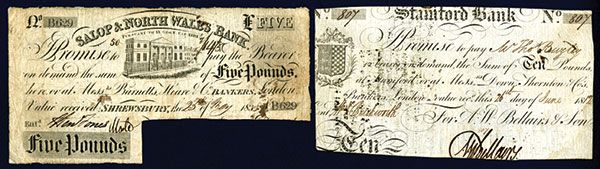 No. B629 £ FIVE
SALOP & NORTH WALES BANK
Promise to pay the Bearer
on demand the sum of Five Pounds,
here or at Mess.rs Barnetts, Hoare & Co. BANKERS, London.
Value received, SHREWSBURY, the
B629
Ent.d
Five Pounds
No. 807 Stamford Bank No. 807
Promise to pay
or bearer on demand the Sum of Ten Pounds,
at Stamford or at Mess.rs Down, Thornton & Co.
Bankers, London value rec.d this day of June
For A. W. Bellairs & Son
Ten